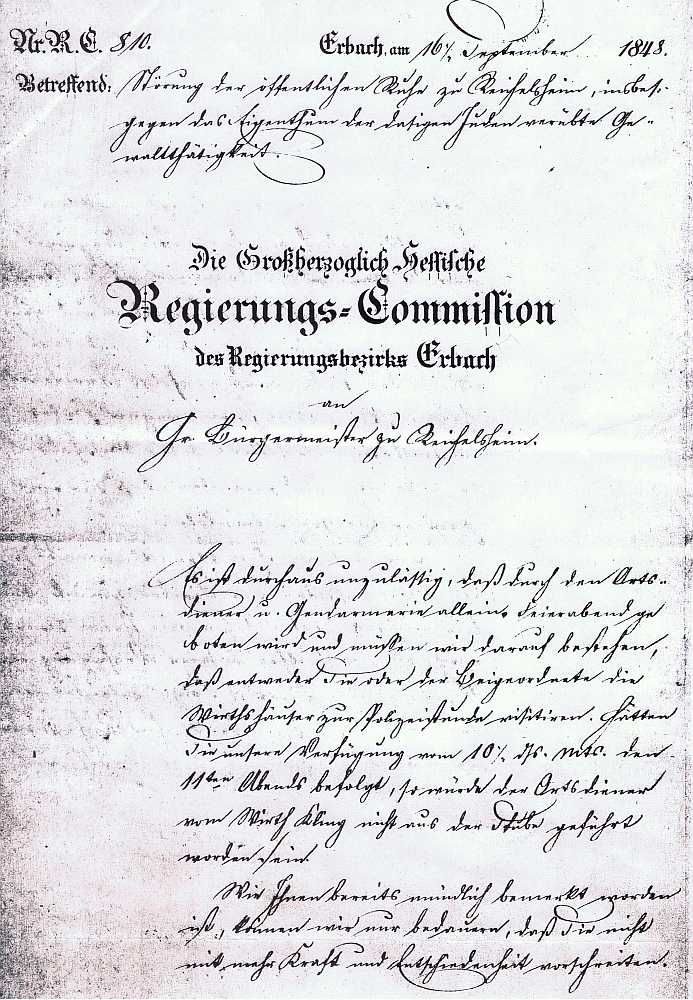 Nr. R. C. 810. Erbach, am 16/. September 1848.
Betreffend: Störung der öffentlichen Ruhe zu Reichelsheim, insbes.
gegen das Eigenthum der dasigen Juden verübte Ge-
waltthätigkeit.
Die Großherzoglich Hessische
Regierungs-Commission
des Regierungsbezirks Erbach
an
Gr. Bürgermeister zu Reichelsheim.
Es ist durchaus unzulässig, daß durch den Orts-
diener u. Gendarmerie allein Feierabend ge
boten wird und müssen wir darauf bestehen,
daß entweder Sie oder der Beigeordnete die
Wirthshäuser zur Polizeistunde visitiren. Hätten
Sie unsere Verfügung vom 10/. ds. Mts. den
11ten Abends befolgt, so würde der Ortsdiener
vom Wirth Kling nicht aus der Stube geführt
worden sein.
Wie Ihnen bereits mündlich bemerkt worden
ist, können wir nur bedauern, daß Sie nicht
mit mehr Kraft und Entschiedenheit vorschreiten.